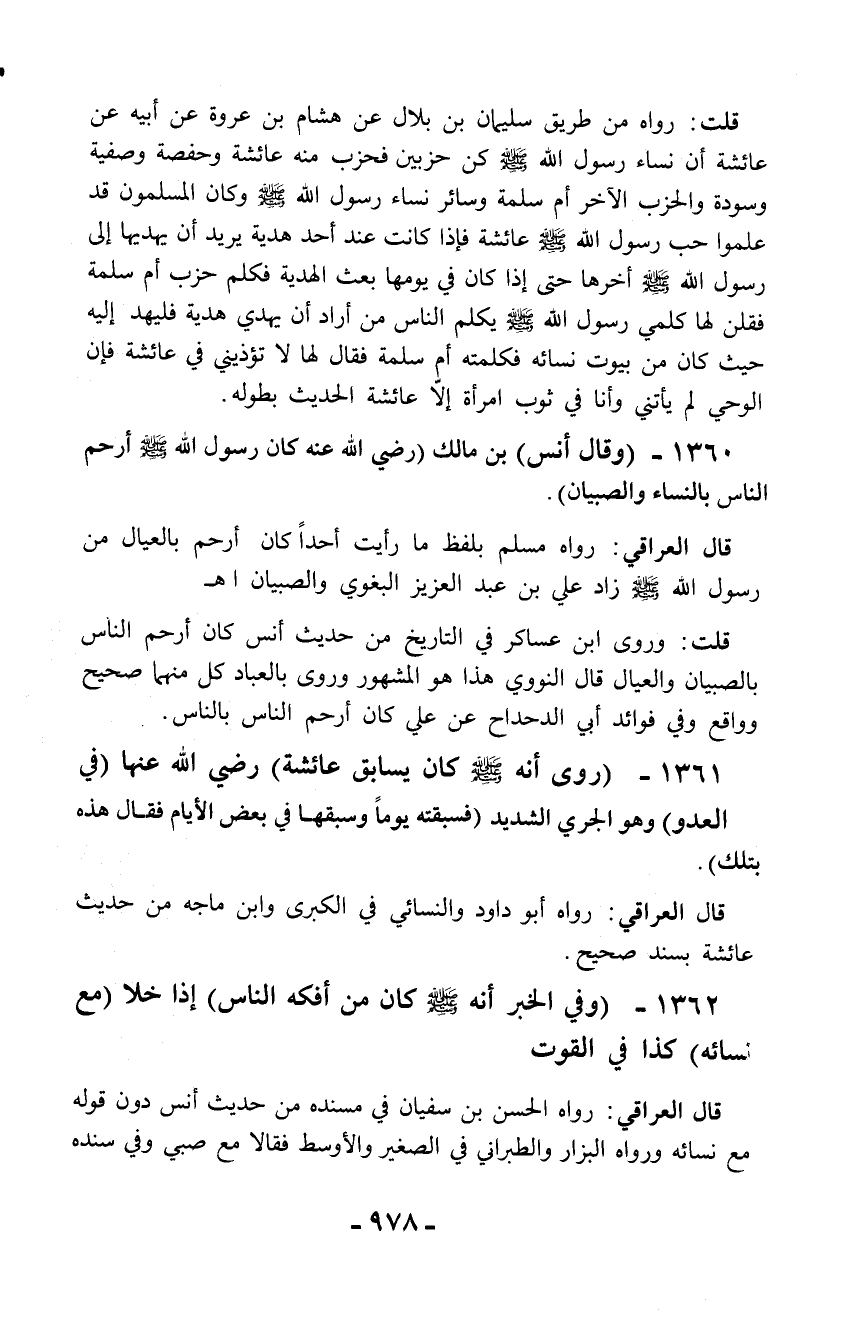 قلت: رواه من طريق سليمان بن بلال عن هشام بن عروة عن أبيه عن
عائشة أن نساء رسول الله ﷺ كن حزبين فحزب منه عائشة وحفصة وصفية
وسودة والحزب الآخر أم سلمة وسائر نساء رسول الله ﷺ وكان المسلمون قد
علموا حب رسول الله ﷺ عائشة فإذا كانت عند أحد هدية يريد أن يهديها إلى
رسول الله ﷺ أخرها حتى إذا كان في يومها بعث الهدية فكلم حزب أم سلمة
فقلن لها كلمي رسول الله ﷺ يكلم الناس من أراد أن يهدي هدية فليهد إليه
حيث كان من بيوت نسائه فكلمته أم سلمة فقال لها لا تؤذيني في عائشة فإن
الوحي لم يأتني وأنا في ثوب امرأة إلاّ عائشة الحديث بطوله.
١٣٦٠ - (وقال أنس) بن مالك (رضي الله عنه كان رسول الله ﷺ أرحم
الناس بالنساء والصبيان).
قال العراقي: رواه مسلم بلفظ ما رأيت أحداً كان أرحم بالعيال من
رسول الله ﷺ زاد علي بن عبد العزيز البغوي والصبيان ا هـ
قلت: وروى ابن عساكر في التاريخ من حديث أنس كان أرحم الناس
بالصبيان والعيال قال النووي هذا هو المشهور وروى بالعباد كل منهما صحيح
وواقع وفي فوائد أبي الدحداح عن علي كان أرحم الناس بالناس.
١٣٦١ - (روى أنه ﷺ كان يسابق عائشة) رضي الله عنها (في
العدو) وهو الجري الشديد (فسبقته يوماً وسبقها في بعض الأيام فقال هذه
بتلك).
قال العراقي: رواه أبو داود والنسائي في الكبرى وابن ماجه من حديث
عائشة بسند صحيح.
١٣٦٢ - (وفي الخبر أنه ﷺ كان من أفكه الناس) إذا خلا (مع
نسائه) كذا في القوت
قال العراقي: رواه الحسن بن سفيان في مسنده من حديث أنس دون قوله
مع نسائه ورواه البزار والطبراني في الصغير والأوسط فقالا مع صبي وفي سنده
- ٩٧٨ -